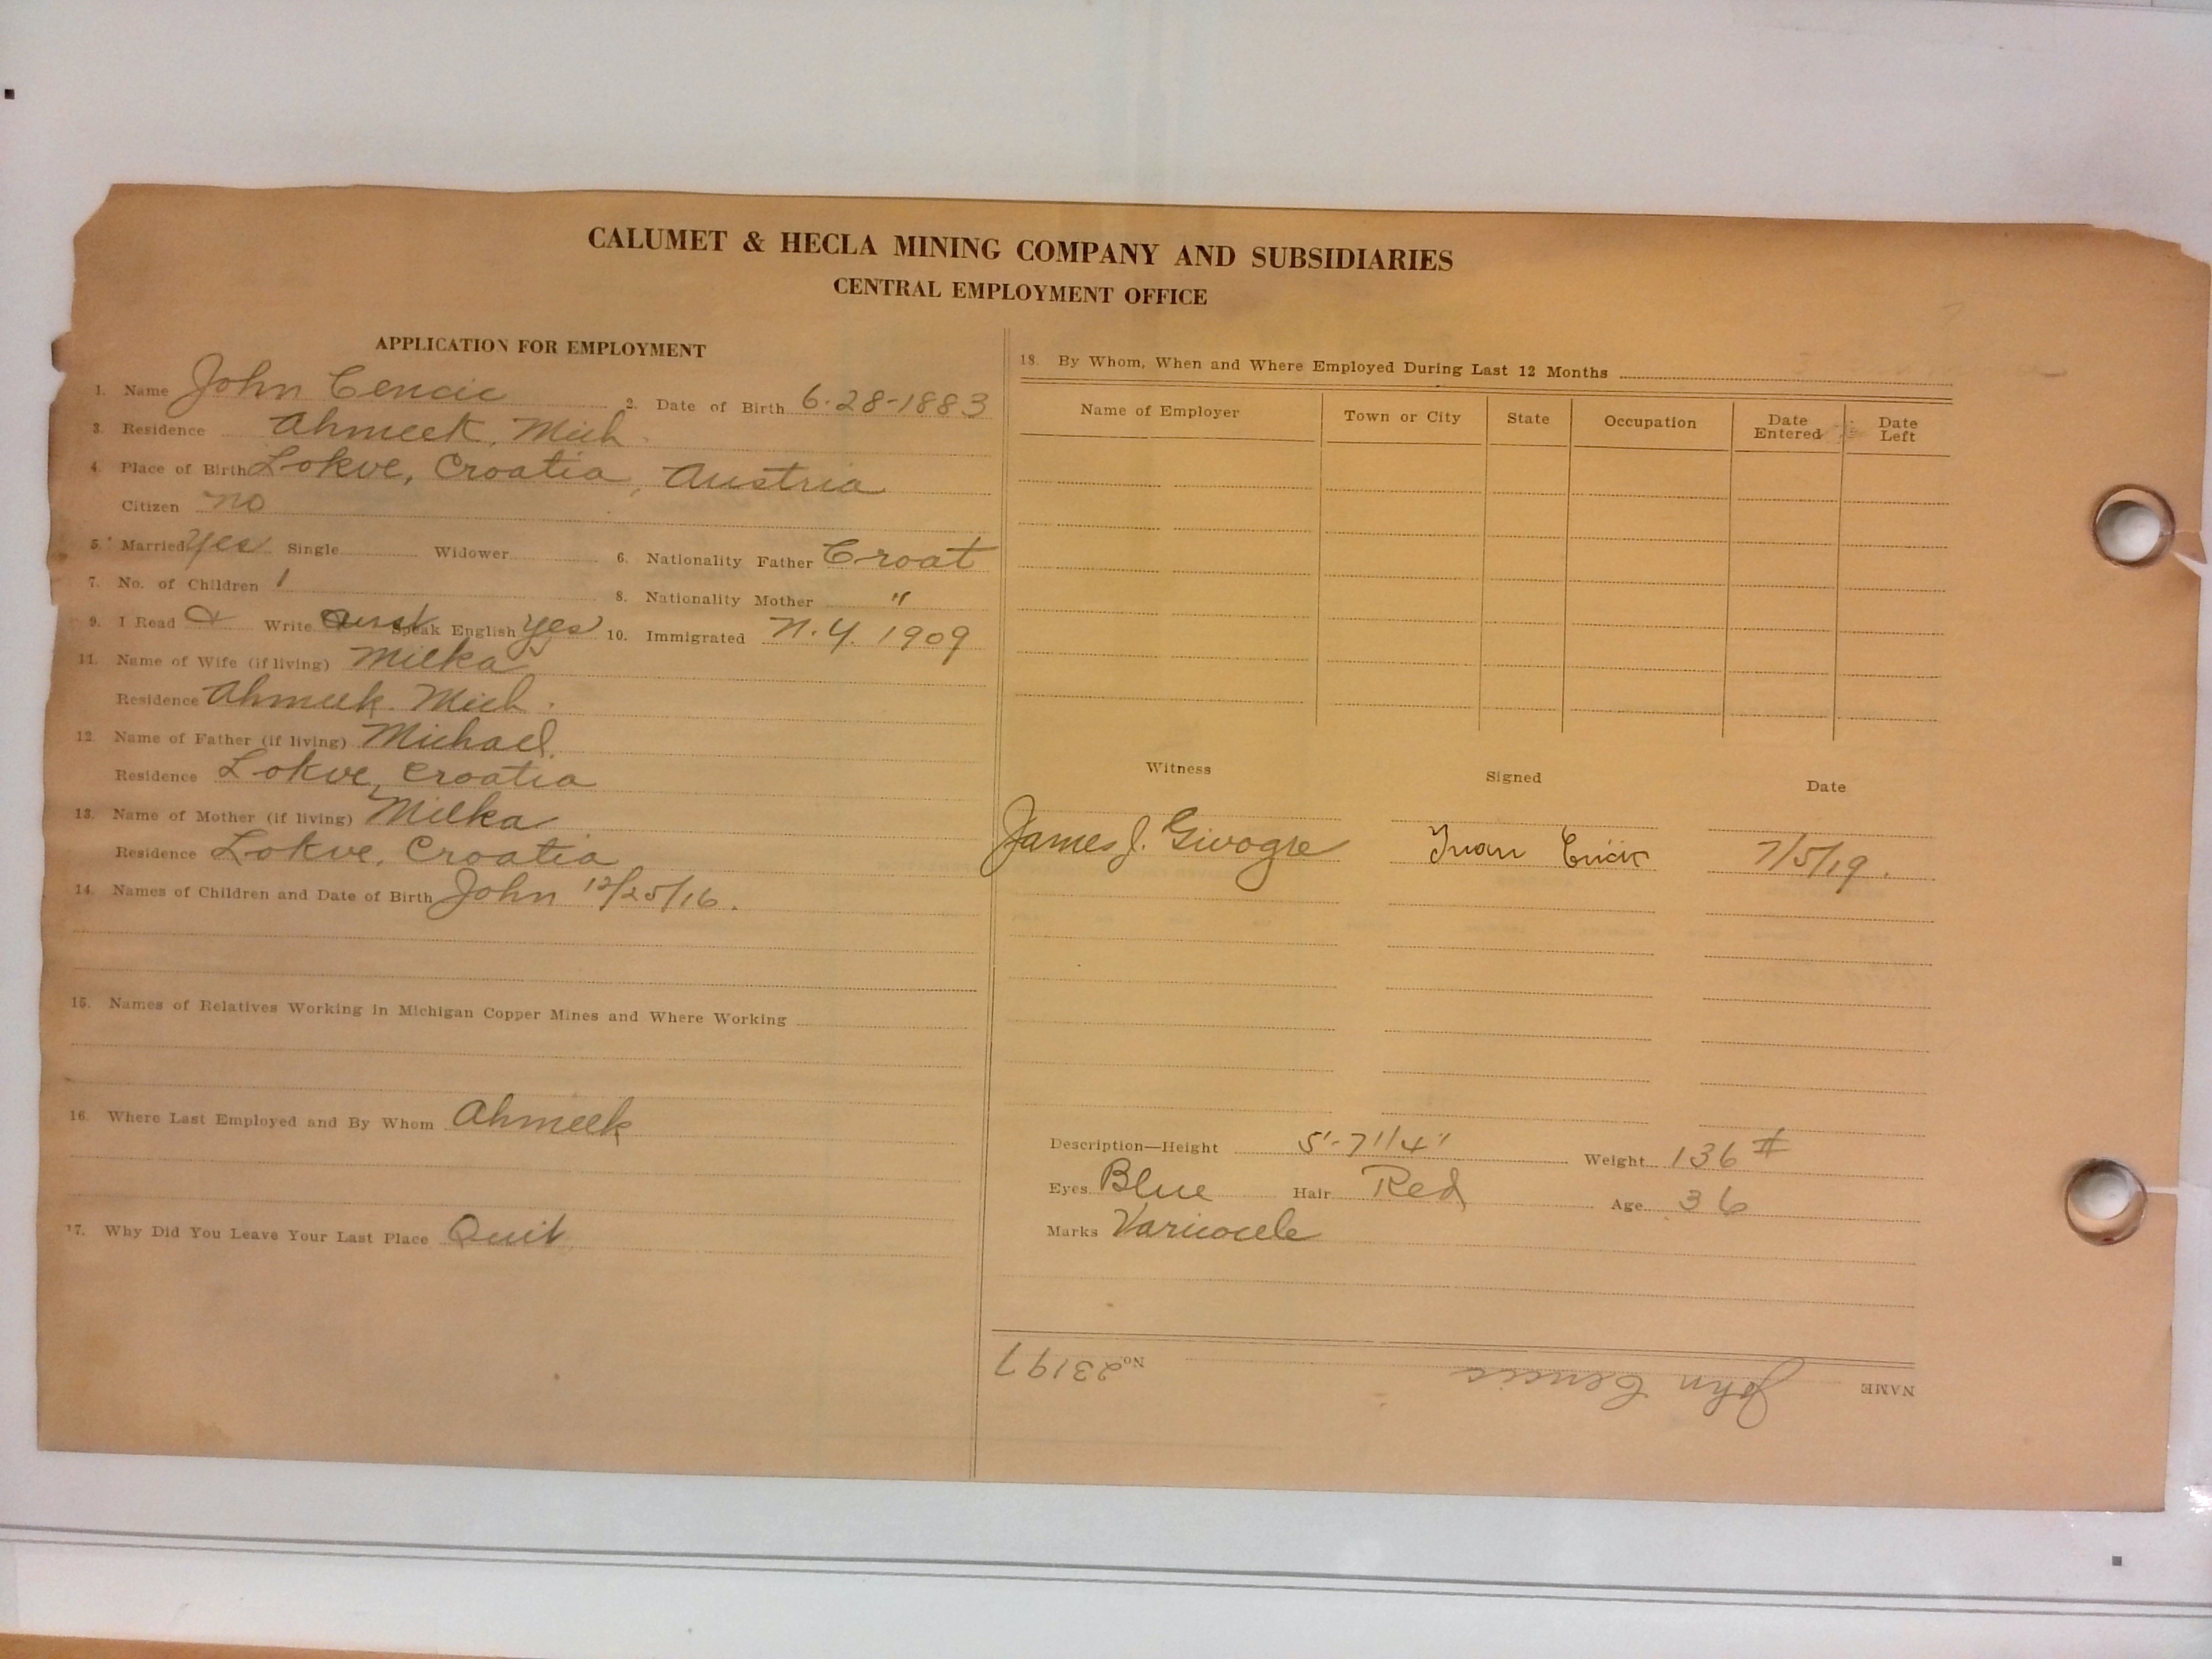 CALUMET & HECLA MINING COMPANY AND SUBSIDIARIES
CENTRAL EMPLOYMENT OFFICE
APPLICATION FOR EMPLOYMENT
1. Name John Cencic 2. Date of Birth 6-28-1883
3. Residence Ahmeek, Mich.
4. Place of Birth Lokve, Croatia, Austria
Citizen no
5. Married yes Single Widower 6. Nationality Father Croat
7. No. of Children 1 8. Nationality Mother "
9. I Read & Write Aust Speak English yes 10. Immigrated N.Y. 1909
11. Name of Wife (if living) Milka
Residence Ahmeek Mich.
12. Name of Father (if living) Michael
Residence Lokve, Croatia
13. Name of Mother (if living) Milka
Residence Lokve, Croatia
14. Names of Children and Date of Birth John 12/25/16.
15. Names of Relatives Working in Michigan Copper Mines and Where Working
16. Where Last Employed and By Whom Ahmeek
17. Why Did You Leave Your Last Place Quit
18. By Whom, When and Where Employed During Last 12 Months
Name of Employer Town or City State Occupation Date Entered Date Left
Witness Signed Date
James J. Givogre Ivan 7/5/19.
Description—Height 5'-7 1/4" Weight 136 #
Eyes Blue Hair Red Age 36
Marks Varicocele
NAME John Cencic No. 23197